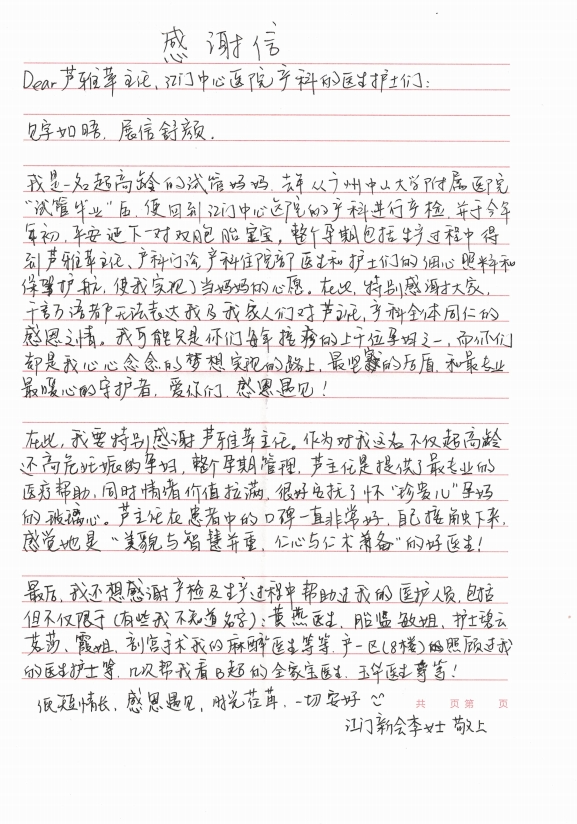 感谢信
Dear 芦雅苹主任、江门中心医院产科的医生护士们：
见字如晤，展信舒颜．
我是一名超高龄的试管妈妈，去年从广州中山大学附属医院
“试管毕业”后，便回到江门中心医院的产科进行产检，并于今年
年初，平安诞下一对双胞胎宝宝，整个孕期包括生产过程中得
到芦雅苹主任、产科门诊、产科住院部医生和护士们的细心照料和
保驾护航，使我实现了当妈妈的心愿。在此，特别感谢大家，
千言万语都无法表达我及我家人们对芦主任、产科全体同仁的
感恩之情。我可能只是你们每年接诊的上千位孕妈之一，而你们
却是我心心念念的梦想实现的路上，最坚毅的后盾，和最专业
最暖心的守护者，爱你们，感恩遇见！
在此，我要特别感谢芦雅苹主任。作为对我这名不仅超高龄
还高危妊娠的孕妇，整个孕期管理，芦主任是提供了最专业的
医疗帮助，同时情绪价值拉满，很好安抚了怀“珍贵儿”孕妈
的玻璃心。芦主任在患者中的口碑一直非常好，自己接触下来，
感觉她是“美貌与智慧并重，仁心与仁术兼备”的好医生！
最后，我还想感谢产检及生产过程中帮助过我的医护人员，包括
但不仅限于（有些我不知道名字）：黄燕医生，胎监敏姐，护士碧云
茗莎、霞姐，剖宫手术我的麻醉医生等等，产一区（8楼）的照顾过我
的医生护士等，几次帮我看B超的全家宝医生，玉华医生等等！
纸短情长，感恩遇见，时光荏苒，一切安好
共 页 第 页
江门新会李女士 敬上